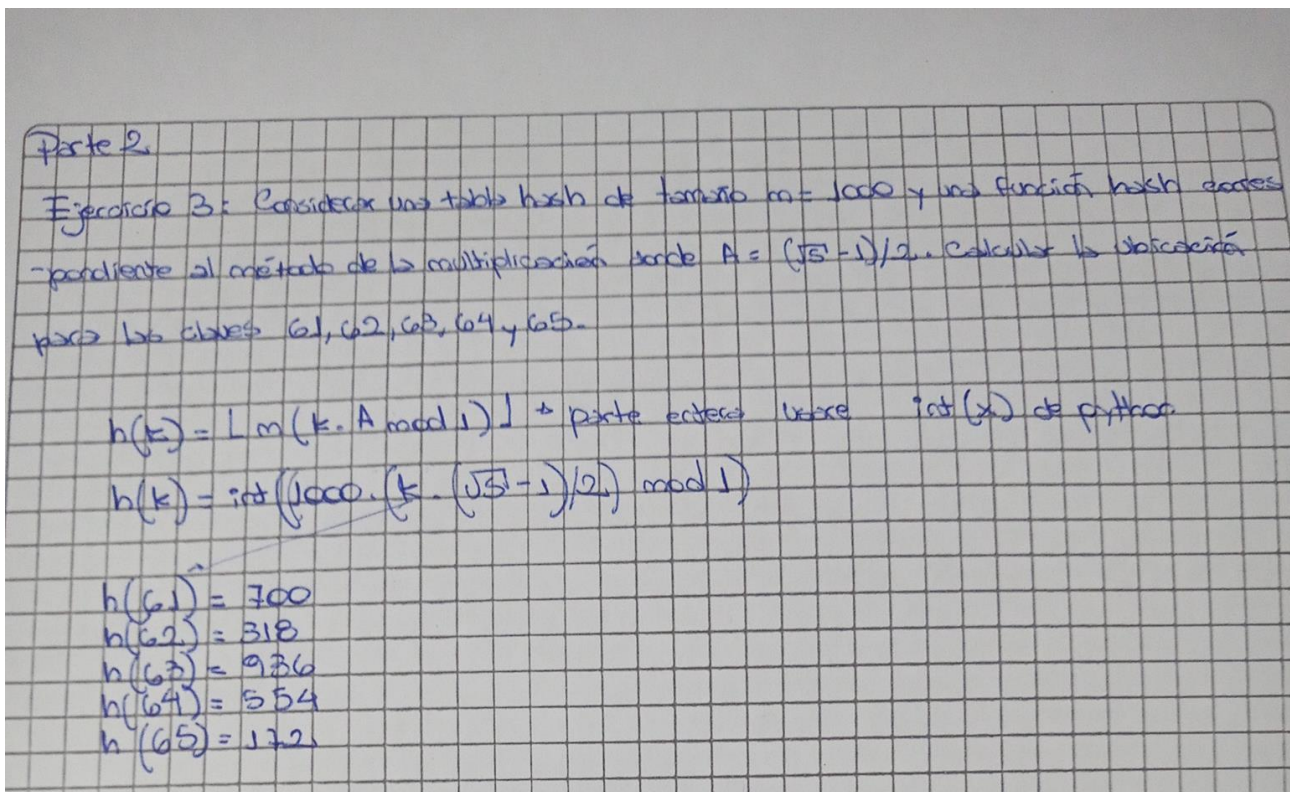 Parte 2
Ejercicio 3: Considerar una tabla hash de tamaño m = 1000 y una función hash corres
-pondiente al método de la multiplicación donde A = (√5 - 1)/2. Calcular la ubicación
para las claves 61, 62, 63, 64 y 65.
h(k) = ⌊m(k. A mod 1)⌋ → parte entera int(x) de python
h(k) = int((1000. (k. (√5 - 1)/2) mod 1)
h(61) = 700
h(62) = 318
h(63) = 936
h(64) = 554
h(65) = 172